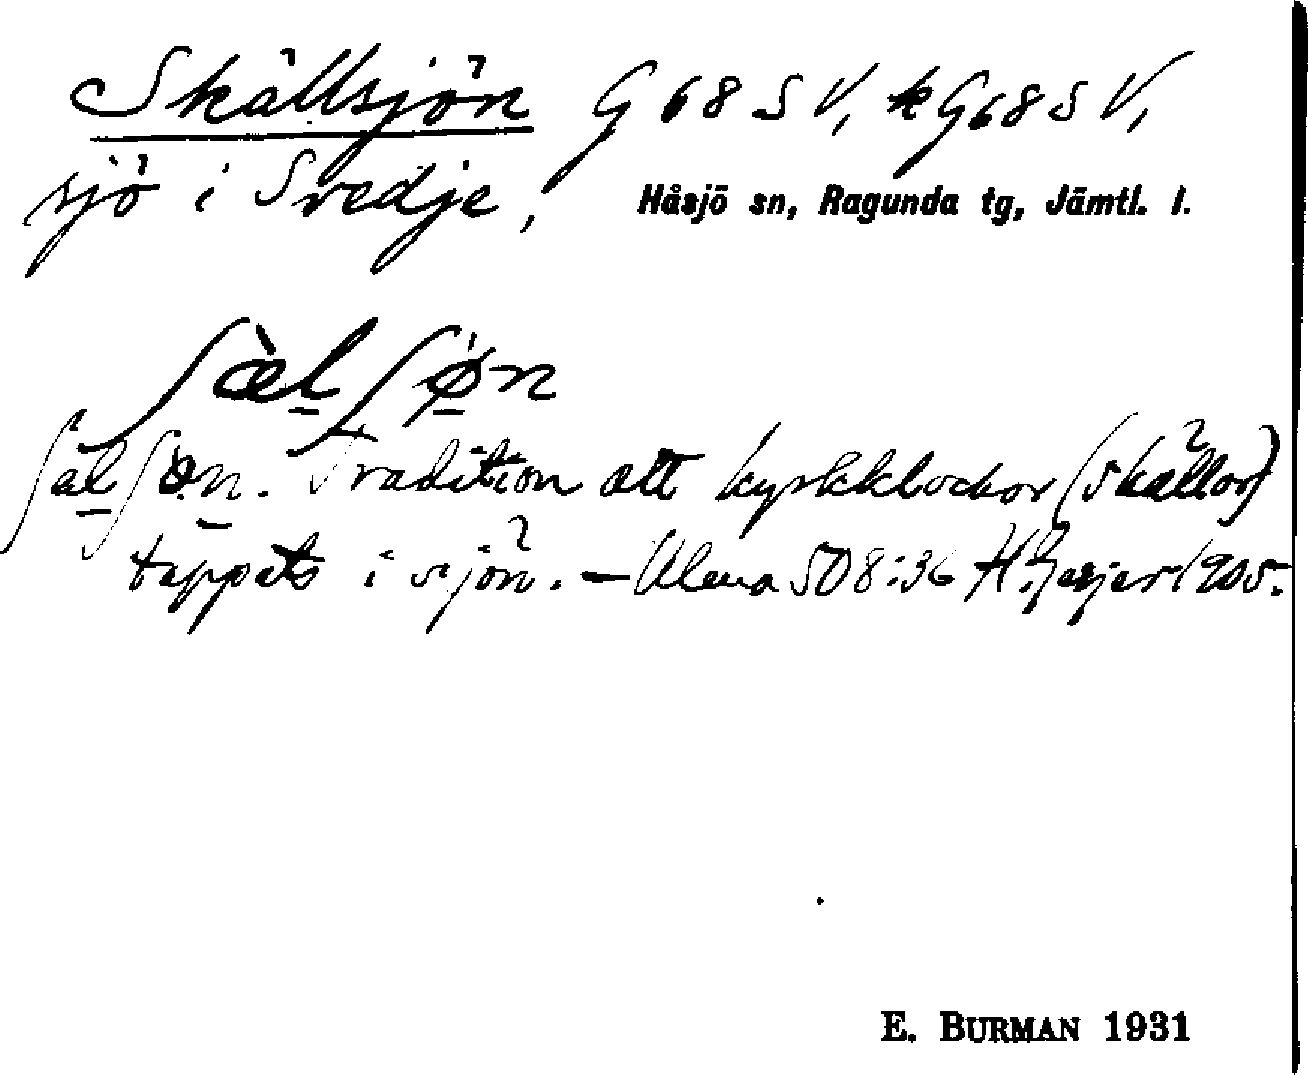 Skällsjön G 68 S V, k G 68 S V,
sjö i Svedje, Håsjö sn, Ragunda tg, Jämtl. l.
ʃæ̀lʃøn
ʃälʃön. Tradition att kyrkklockor (skällor)
tappats i sjön. – Ulma 508:36 H. Geijer 1905.
E. BURMAN 1931